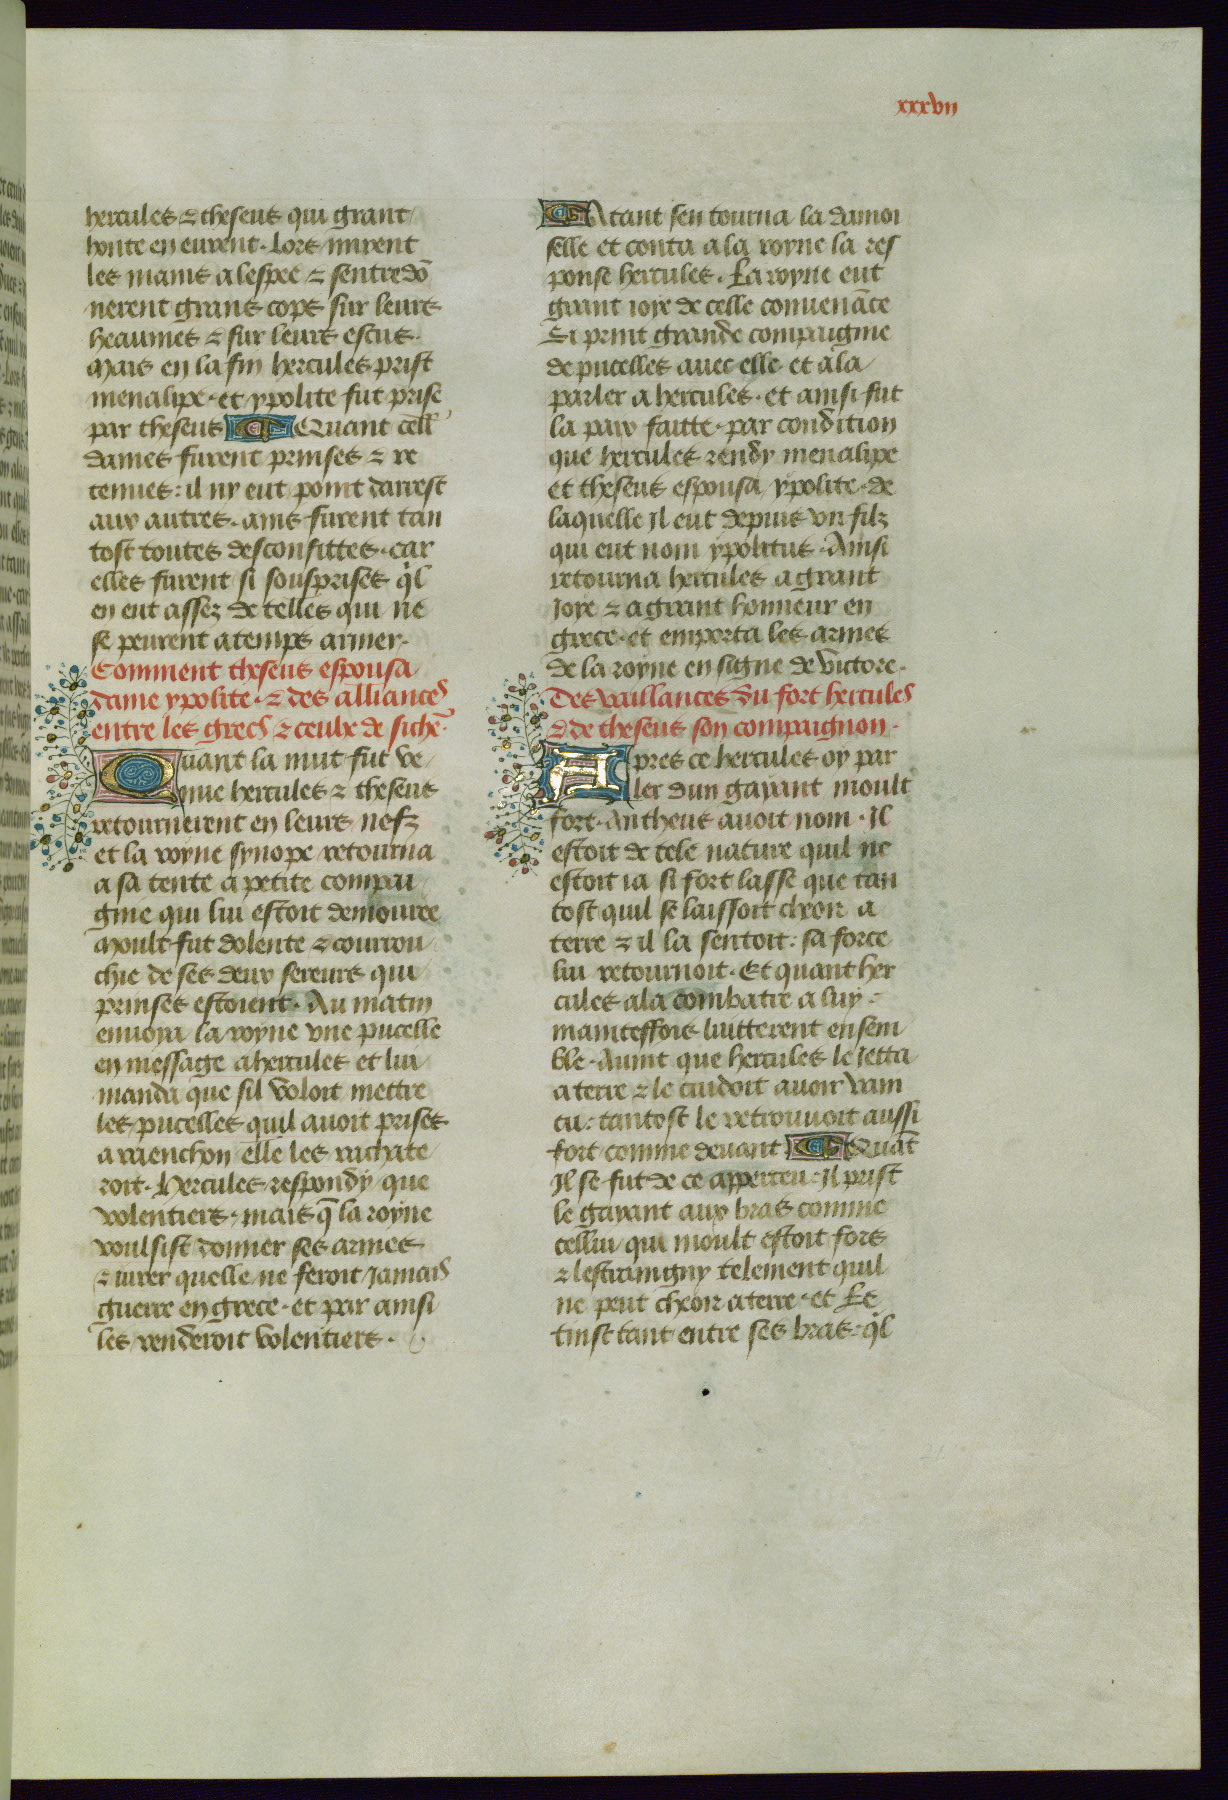 xxxvii
hercules ⁊ theseus qui grant
honte en eurent. Lors mirent
les mains a lespee ⁊ sentredō
nerent grans cops sur leurs
heaumes ⁊ sur leurs escus.
Mais en la fin hercules prist
menalipe. et ypolite fut prise
par theseus Quant cell'
dames furent prinses ⁊ re
tenues: il ny eut point darrest
aux autres. ains furent tan
tost toutes desconfittes. car
elles furent si sousprises q̄l
en eut assez de telles qui ne
se peurent a temps armer.
Comment theseus espousa
dame ypolite. ⁊ des alliances
entre les grecs ⁊ ceulx de siche.
Quant la nuit fut ve
nue hercules ⁊ theseus
retournerent en leurs nefz
et la royne synope retourna
a sa tente a petite compai
gnie qui lui estoit demouree
Moult fut dolente ⁊ courrou
chie de ses deux sereurs qui
prinses estoient. Au matin
enuoya la royne vne pucelle
en message a hercules et lui
manda que sil voloit mettre
les pucelles quil auoit prises
a raenchon elle les rachate
roit. Hercules respondy que
volentiers. mais q̄ la royne
voulsist donner ses armes
⁊ iurer quelle ne feroit jamais
guerre en grece. et par ainsi
les renderoit volentiers.
Atant sen tourna la damoi
selle et conta a la royne la res
ponse hercules. La royne eut
grant ioye de celle conuenāce
Si print grande compaignie
de pucelles auec elle et ala
parler a hercules. et ainsi fut
la paix faitte. par condition
que hercules rendy menalipe
et theseus espousa ypolite. de
laquelle Il eut depuis vn filz
qui eut nom ypolitus. Ainsi
retourna hercules a grant
Joye ⁊ a grant honneur en
grece. et emporta les armes
de la royne en signe de victore.
Des vaillances du fort hercules
⁊ de theseus son compaignon.
Apres ce hercules oy par
ler dun gayant moult
fort. Antheus auoit nom. Il
estoit de tele nature quil ne
estoit ia si fort lasse que tan
tost quil se laissoit cheoir a
terre ⁊ il la sentoit: sa force
lui retournoit. Et quant her
cules ala combatre a luy.
mainteffois luitterent ensem
ble. Auint que hercules le Jetta
a terre ⁊ le cuidoit auoir vain
cu: tantost le retrouuoit aussi
fort comme deuant Quāt
Il se fut de ce apperceu: Il prist
le gayant aux bras comme
cellui qui moult estoit fors
⁊ lestraingny telement quil
ne peut cheoir a terre. et Le
tinst tant entre ses bras. q̄l